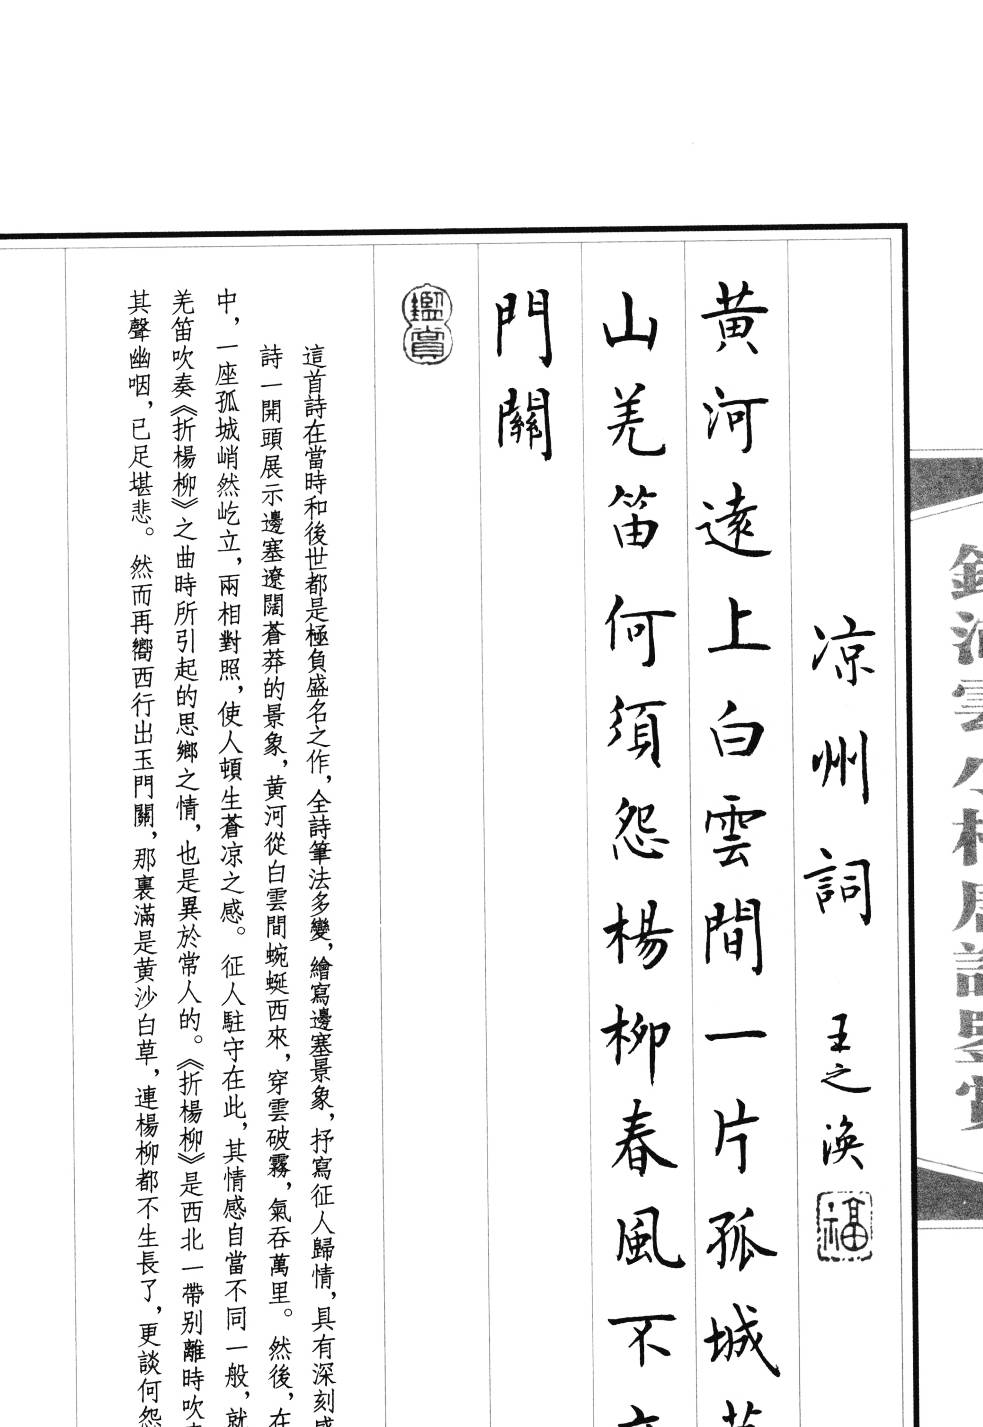 凉州詞 王之渙 福
黄河遠上白雲間一片孤城
山羌笛何須怨楊柳春風不
門關
鑑賞
這首詩在當時和後世都是極負盛名之作，全詩筆法多變，繪寫邊塞景象，抒寫征人歸情，具有深刻感
詩一開頭展示邊塞遼闊蒼莽的景象，黄河從白雲間蜿蜒西來，穿雲破霧，氣吞萬里。然後，在
中，一座孤城峭然屹立，兩相對照，使人頓生蒼凉之感。征人駐守在此，其情感自當不同一般，就
羌笛吹奏《折楊柳》之曲時所引起的思鄉之情，也是異於常人的。《折楊柳》是西北一帶别離時吹
其聲幽咽，已足堪悲。然而再嚮西行出玉門關，那裏滿是黄沙白草，連楊柳都不生長了，更談何怨